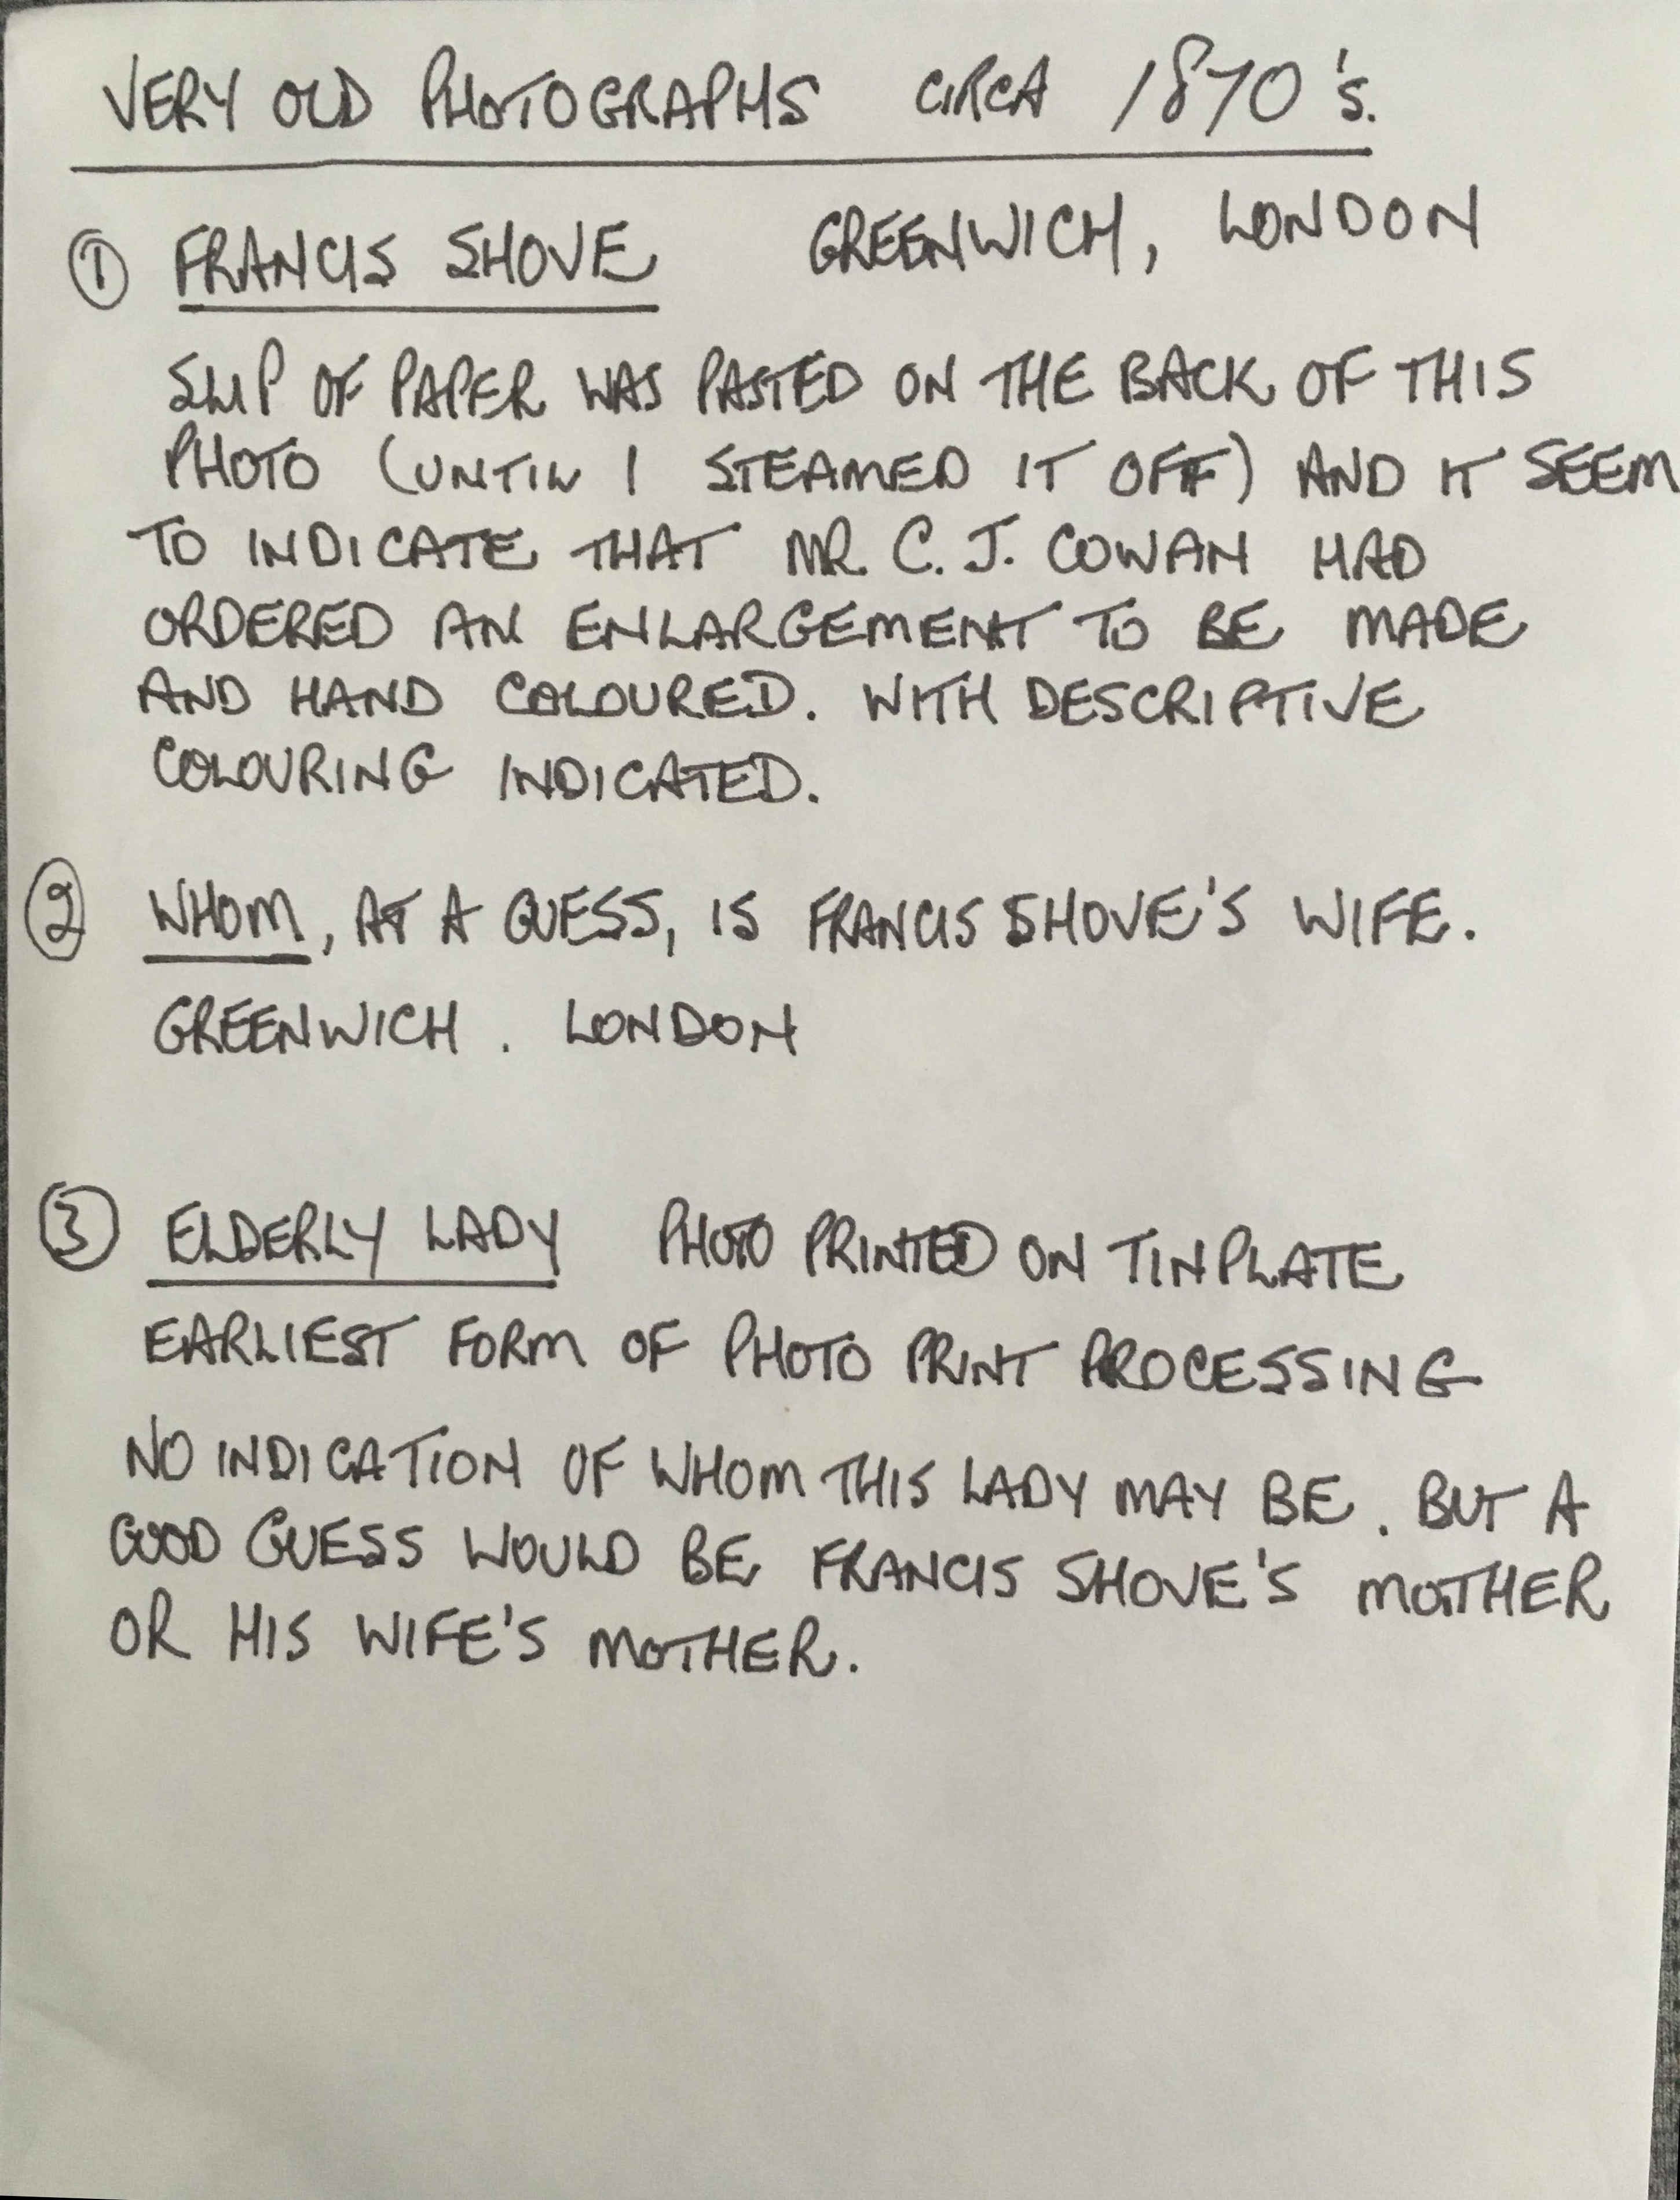 VERY OLD PHOTOGRAPHS CIRCA 1870's.
① FRANCIS SHOVE GREENWICH, LONDON
SLIP OF PAPER WAS PASTED ON THE BACK OF THIS
PHOTO (UNTIL I STEAMED IT OFF) AND IT SEEM
TO INDICATE THAT MR. C. J. COWAN HAD
ORDERED AN ENLARGEMENT TO BE MADE
AND HAND COLOURED. WITH DESCRIPTIVE
COLOURING INDICATED.
② WHOM, AT A GUESS, IS FRANCIS SHOVE'S WIFE.
GREENWICH. LONDON
③ ELDERLY LADY PHOTO PRINTED ON TINPLATE
EARLIEST FORM OF PHOTO PRINT PROCESSING
NO INDICATION OF WHOM THIS LADY MAY BE. BUT A
GOOD GUESS WOULD BE FRANCIS SHOVE'S MOTHER
OR HIS WIFE'S MOTHER.